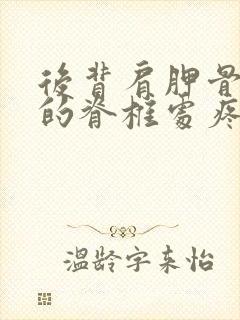 後背肩胛骨
的脊椎處疼
溫龄字来怡